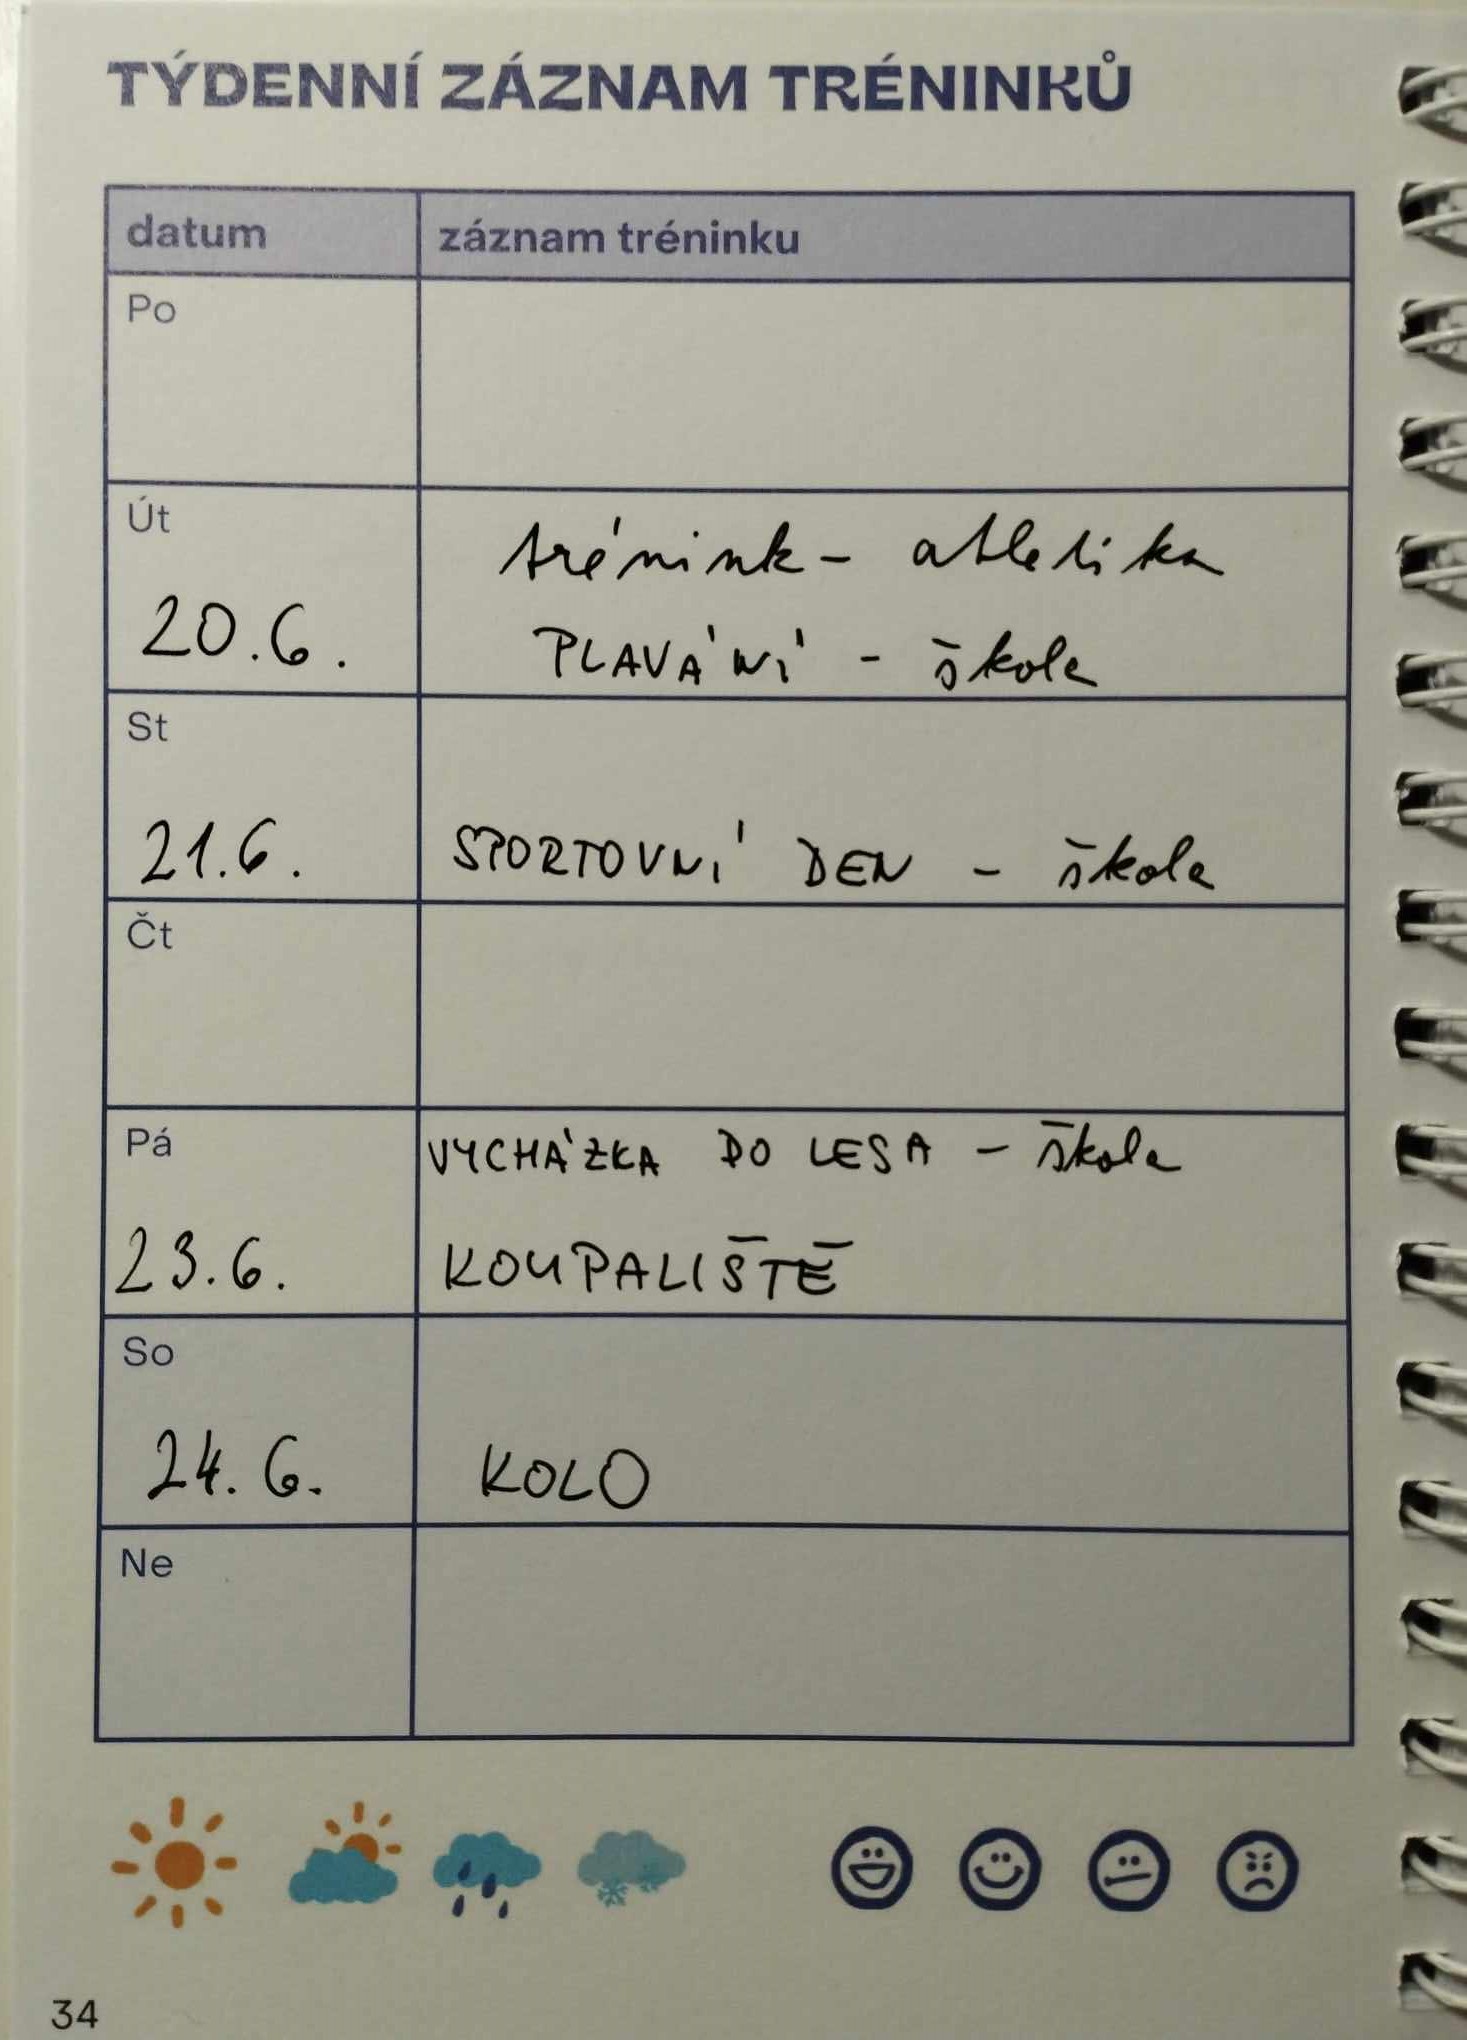 TÝDENNÍ ZÁZNAM TRÉNINKŮ
datum záznam tréninku
Po
Út
trénink - atletika
20.6. PLAVÁNÍ - škola
St
21.6. SPORTOVNÍ DEN - škola
Čt
Pá VYCHÁZKA DO LESA - škola
23.6. KOUPALIŠTĚ
So
24.6. KOLO
Ne
34